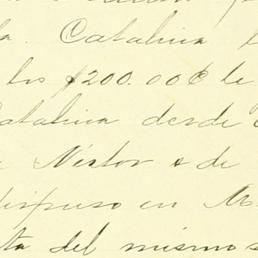 a. Catalina
los $200.00 le
Catalina desde
Nestor o de
dispuso en M
ta del mismo s